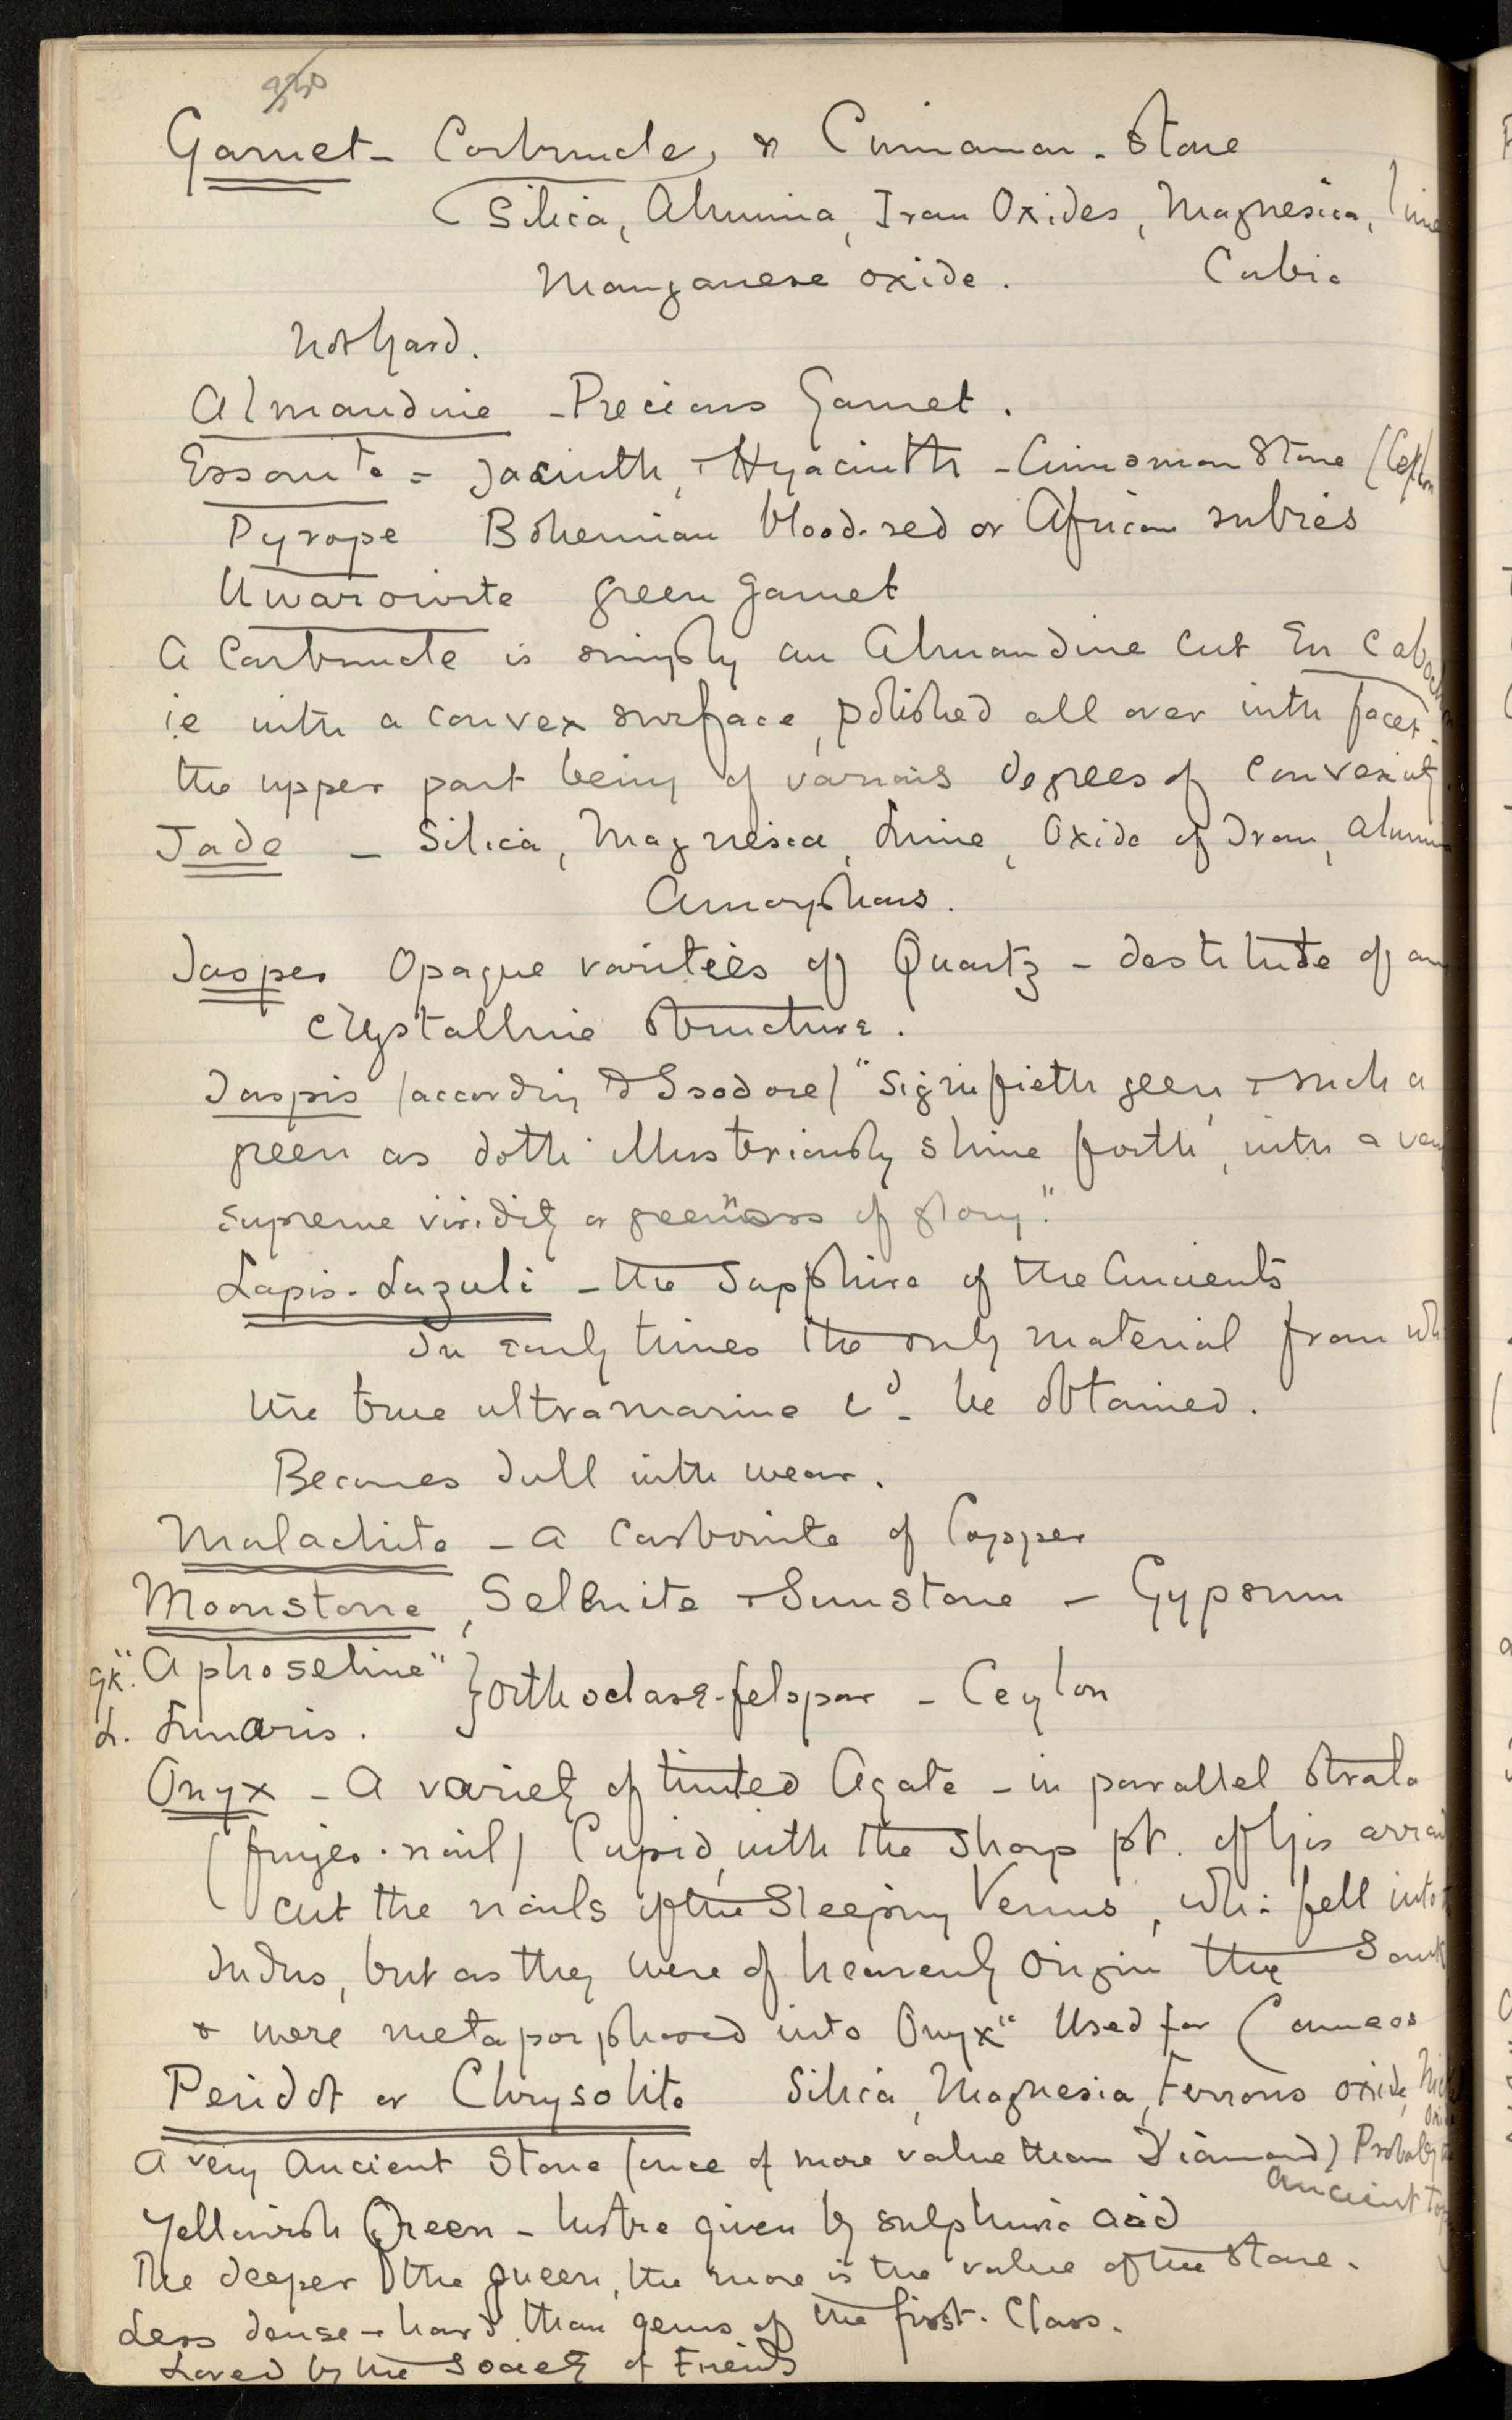 330
Garnet - Carbuncle, or Cinnamon-Stone
(Silica, Alumina, Iron Oxides, Magnesia, lime
Manganese oxide. Cubic
Not hard.
Almandine - Precious Garnet.
Essonite = Jacinth, + Hyacinth - Cinnamon Stone (Ceylon
Pyrope Bohemian blood-red or African rubies
Uwarowite green garnet
A Carbuncle is simply an Almandine cut En Cabochon
i.e with a convex surface, polished all over with facet
the upper part being of various degrees of convexity
Jade - Silica, Magnesia, Lime, Oxide of Iron, Alumi
Amorphous.
Jasper Opaque varities of Quartz - destitute of an
crystalline structure.
Jaspis (according to Isodore) "signifieth green, + such a
green as doth illustriously shine forth, with a very
supreme viridity or greenness of glory."
Lapis-Lazuli - the Sapphire of the Ancients
In early times the only material from wh
the true ultramarine cd. be obtained.
Becomes dull with wear.
Malachite - A Carbonite of Copper
Moonstone, Selenite + Sunstone - Gypsum
gk. "Aphoseline" } Orthoclase-felspar - Ceylon
L. Lunaris.
Onyx - A variety of tinted Agate - in parallel strata
(finger-nail) Cupid, with the sharp pt. of his arrow
cut the nails of the sleeping Venus, whi: fell into t
Indus, but as they were of heavenly origin they sank
+ were metaporphosed into Onyx" Used for Cameos
Peridot or Chrysolite Silica, Magnesia, Ferrous oxide, Nic
oxi
A very Ancient Stone (once of more value than Diamond) Probably
ancient top
Yellowish Green - lustre given by sulphuric acid
The deeper the green, the more is the value of the stone.
Less dense + hard than gems of the first-Class.
Loved by the Society of Friends